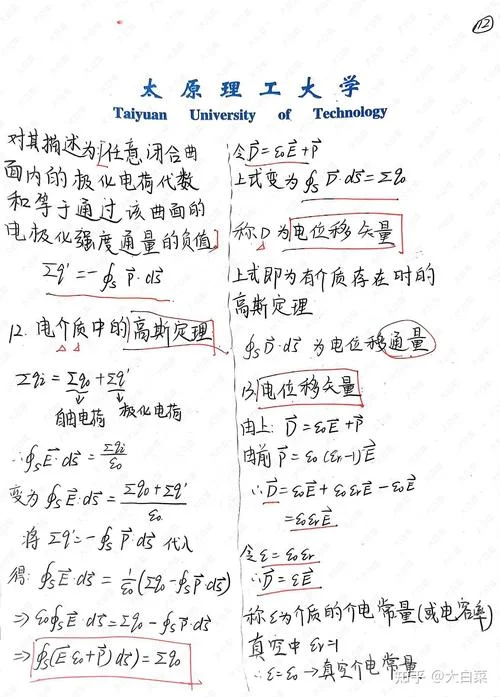 12
太原理工大学
Taiyuan University of Technology
对其描述为[任意闭合曲
面内的极化电荷代数
和等于通过该曲面的
电极化强度通量的负值]
Σq'=-∮s P⃗·dS⃗
12. 电介质中的高斯定理
Σqi=Σq0+Σq'
自由电荷 极化电荷
∴∮sE⃗·dS⃗=Σqi/ε0
变为∮sE⃗·dS⃗=(Σq0+Σq')/ε0
将Σq'=-∮s P⃗·dS⃗代入
得:∮sE⃗·dS⃗=1/ε0(Σq0-∮sP⃗·dS⃗)
⇒ε0∮sE⃗·dS⃗=Σq0-∮sP⃗·dS⃗
⇒∮s(E⃗ε0+P⃗)dS⃗=Σq0
令D⃗=ε0E⃗+P⃗
上式变为∮s D⃗·dS⃗=Σq0
称D为电位移矢量
上式即为有介质存在时的
高斯定理
∮sD⃗·dS⃗为电位移通量
13.电位移矢量
由上:D⃗=ε0E⃗+P⃗
由前P⃗=ε0(εr-1)E⃗
∴D⃗=ε0E⃗+ε0εrE⃗-ε0E⃗
=ε0εrE⃗
令ε=ε0εr
∴D⃗=εE⃗
称ε为介质的介电常量(或电容率)
真空中εr=1
∴ε=ε0→真空介电常量
知乎 @大白菜